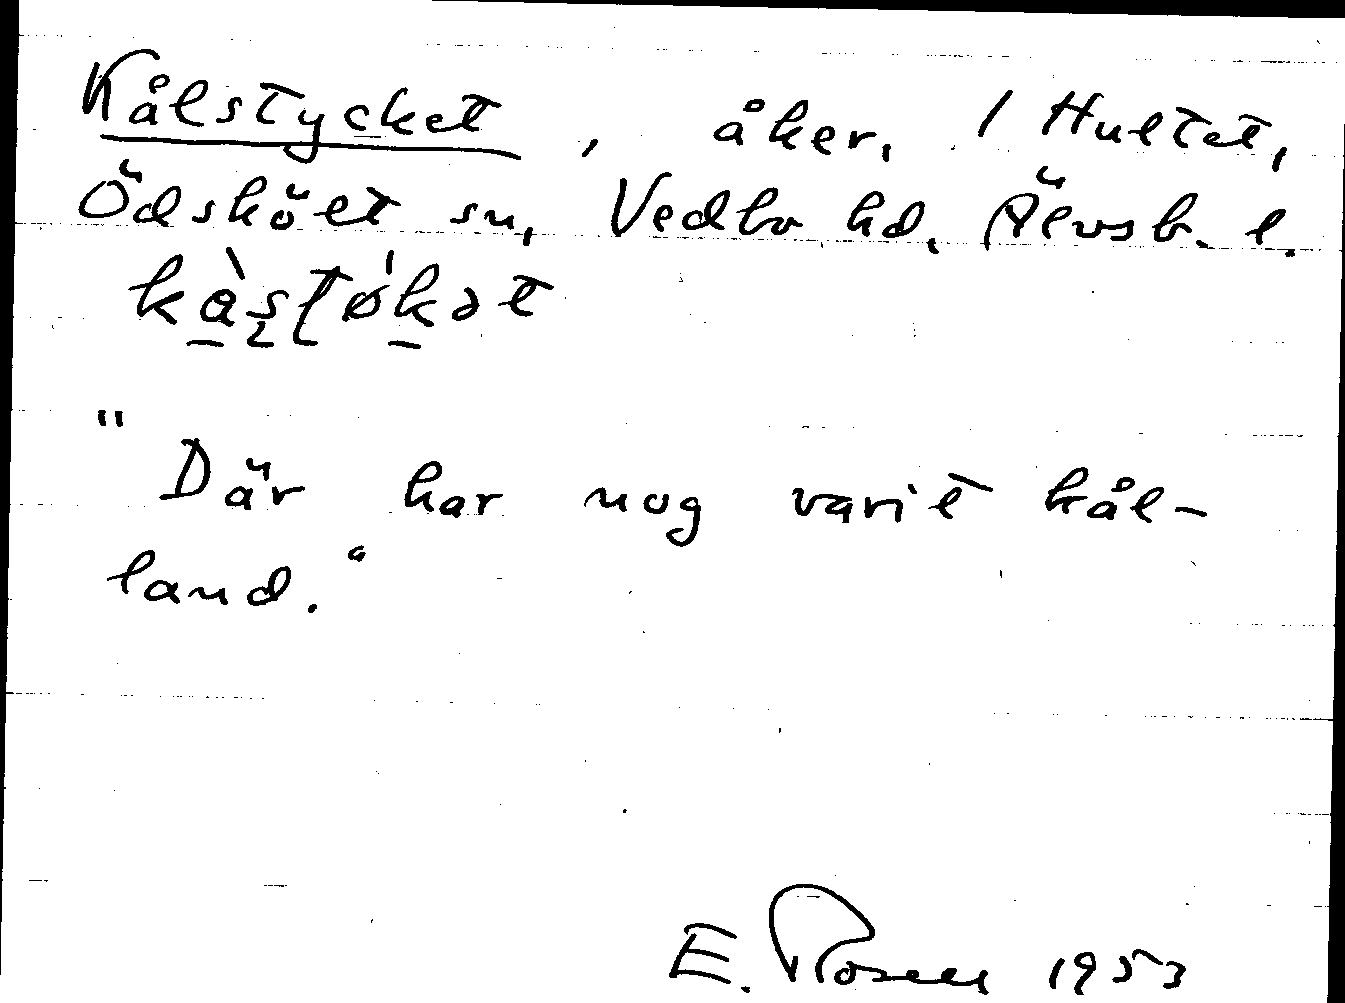 Kålstycket, åker, / Hultet,
Ödskölt sn, Vedbo hd, Älvsb. l.
"Där har nog varit kål-
land."
E. Rosell 1953